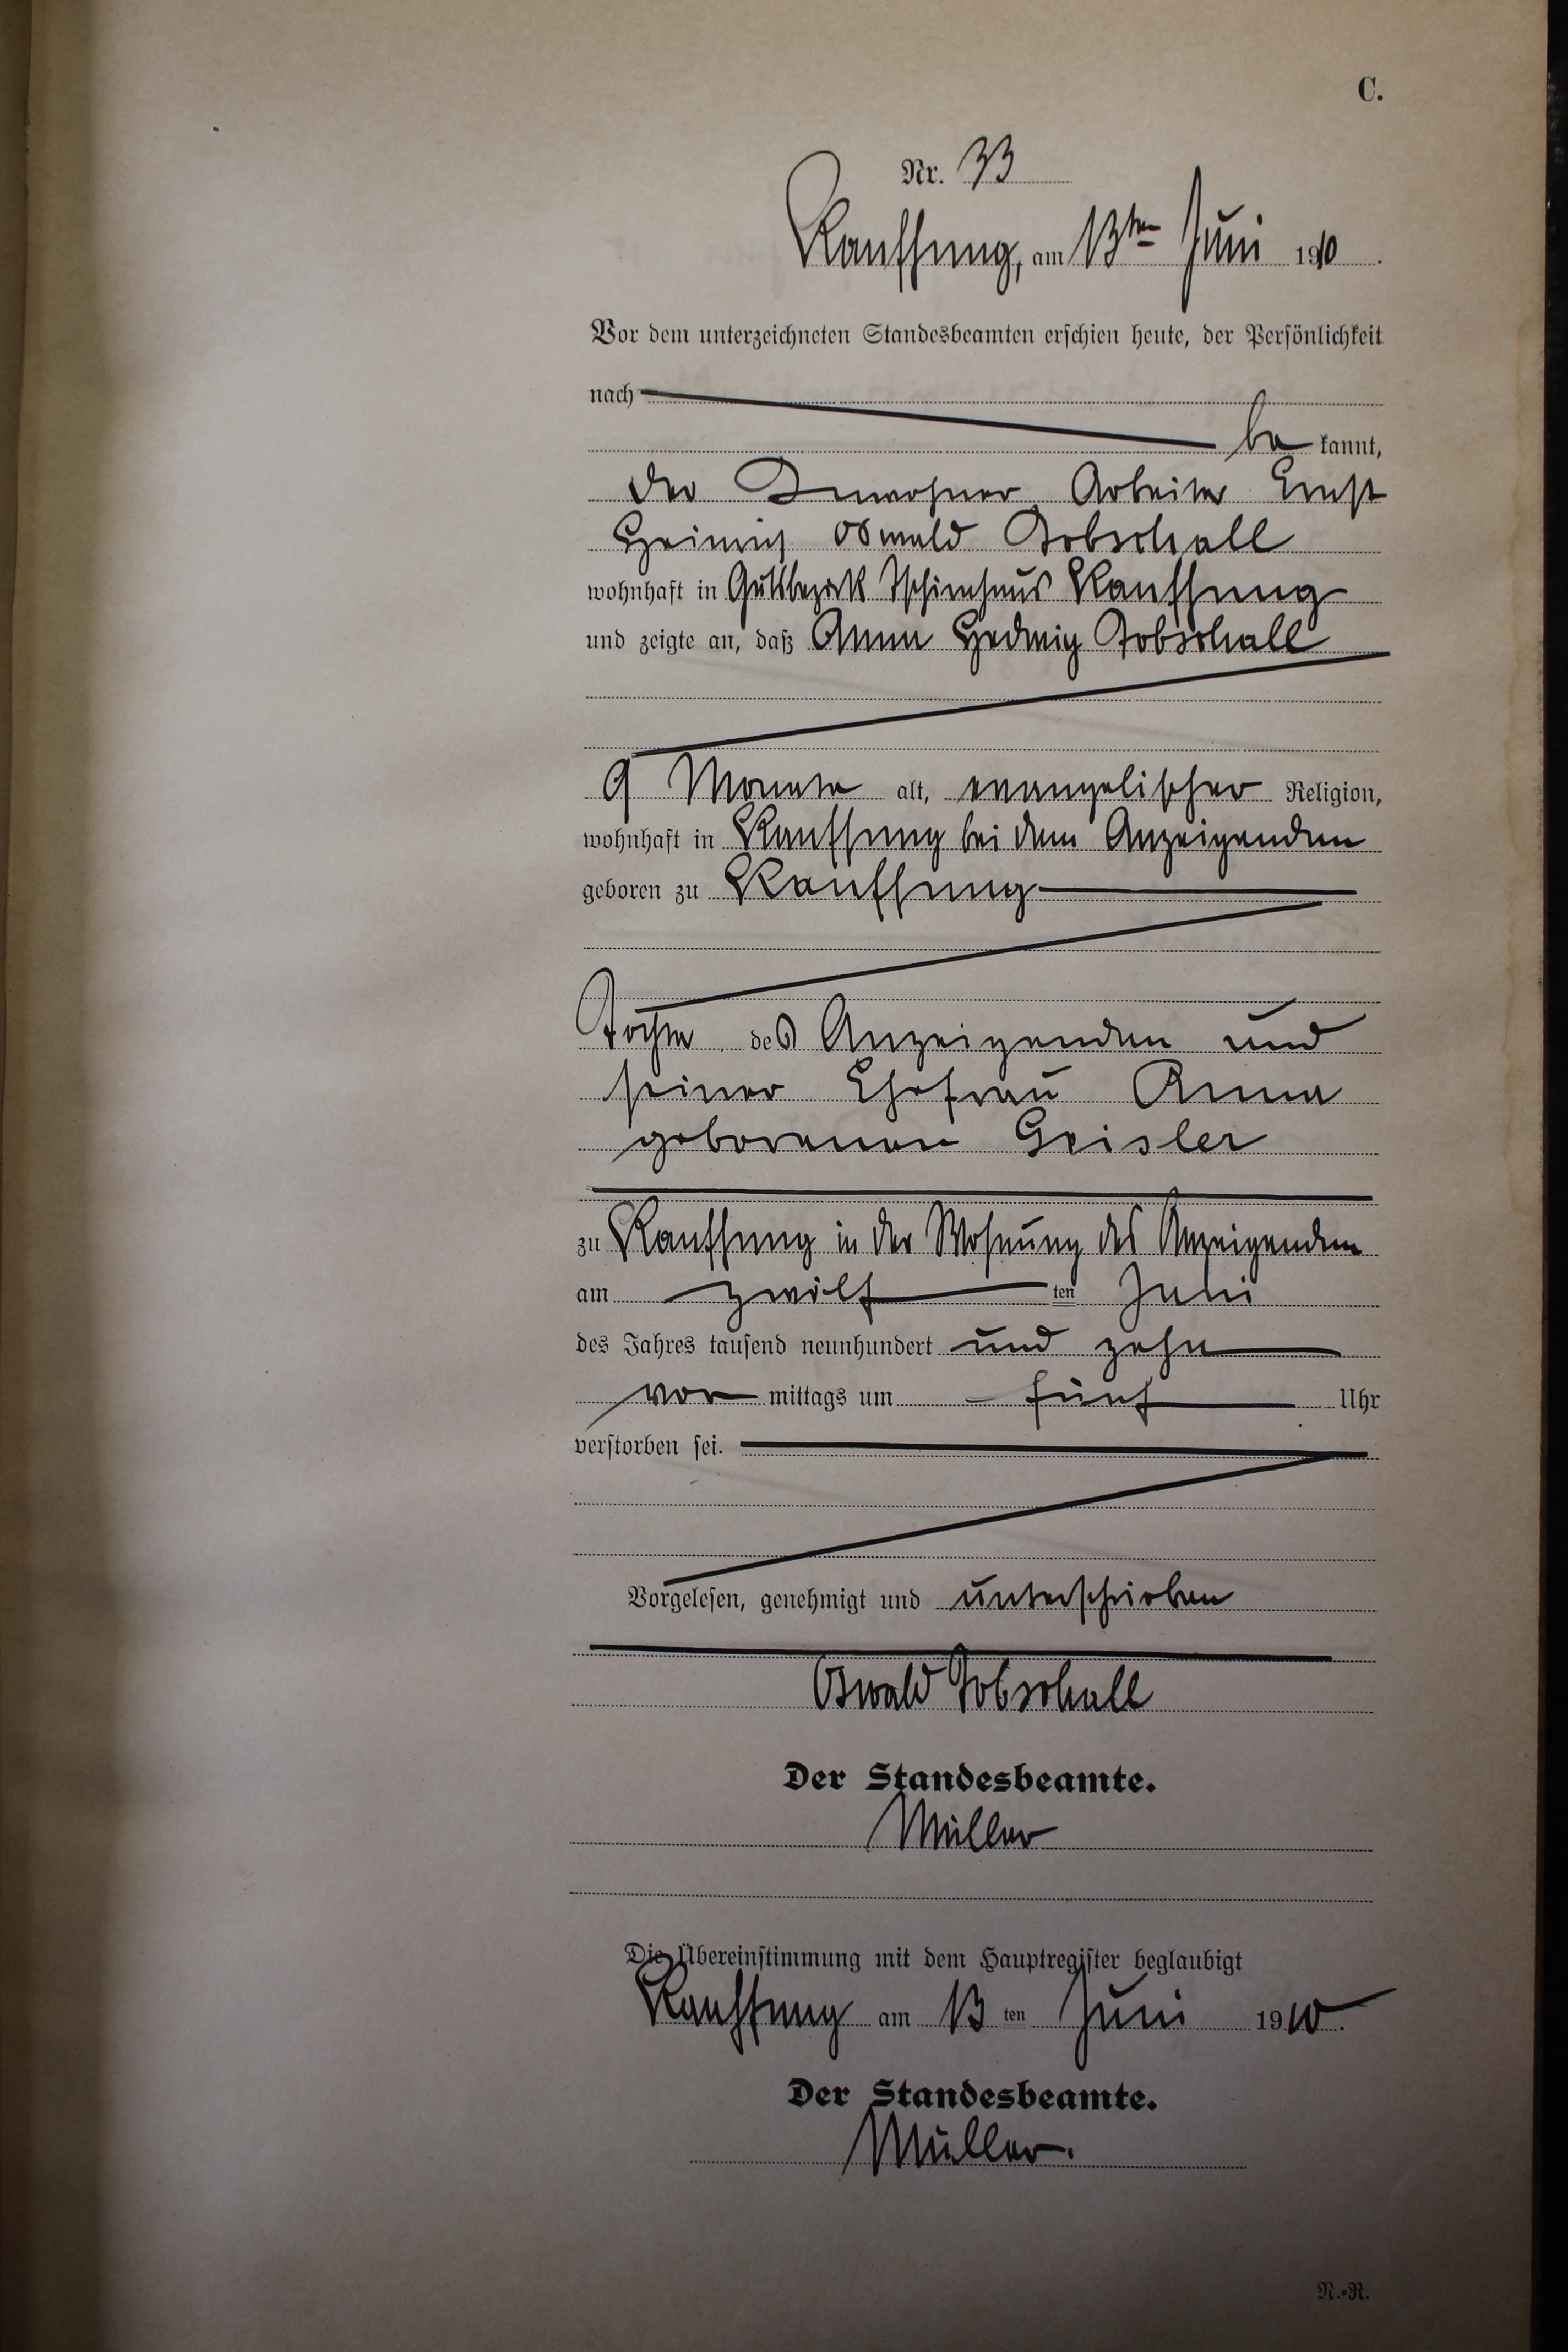 C.
Nr. 33
Kauffung, am 13ten Juni 1910.
Vor dem unterzeichneten Standesbeamten erschien heute, der Persönlichkeit
nach
be kannt,
der Inwohner Arbeiter Ernst
Heinrich Oswald Tobschall
wohnhaft in Gutsbezirk Tschirnhaus Kauffung
und zeigte an, daß Anna Hedwig Tobschall
9 Monate alt, evangelischer Religion,
wohnhaft in Kauffung bei dem Anzeigenden
geboren zu Kauffung
Tochter des Anzeigenden und
seiner Ehefrau Anna
geborenen Geisler
zu Kauffung in der Wohnung des Anzeigenden
am zwölf ten Juni
des Jahres tausend neunhundert und zehn
vor mittags um fünf Uhr
verstorben sei.
Vorgelesen, genehmigt und unterschrieben
Oswald Tobschall
Der Standesbeamte.
Müller
Die Übereinstimmung mit dem Hauptregister beglaubigt
Kauffung am 13 ten Juni 1910.
Der Standesbeamte.
Müller.
N.-R.